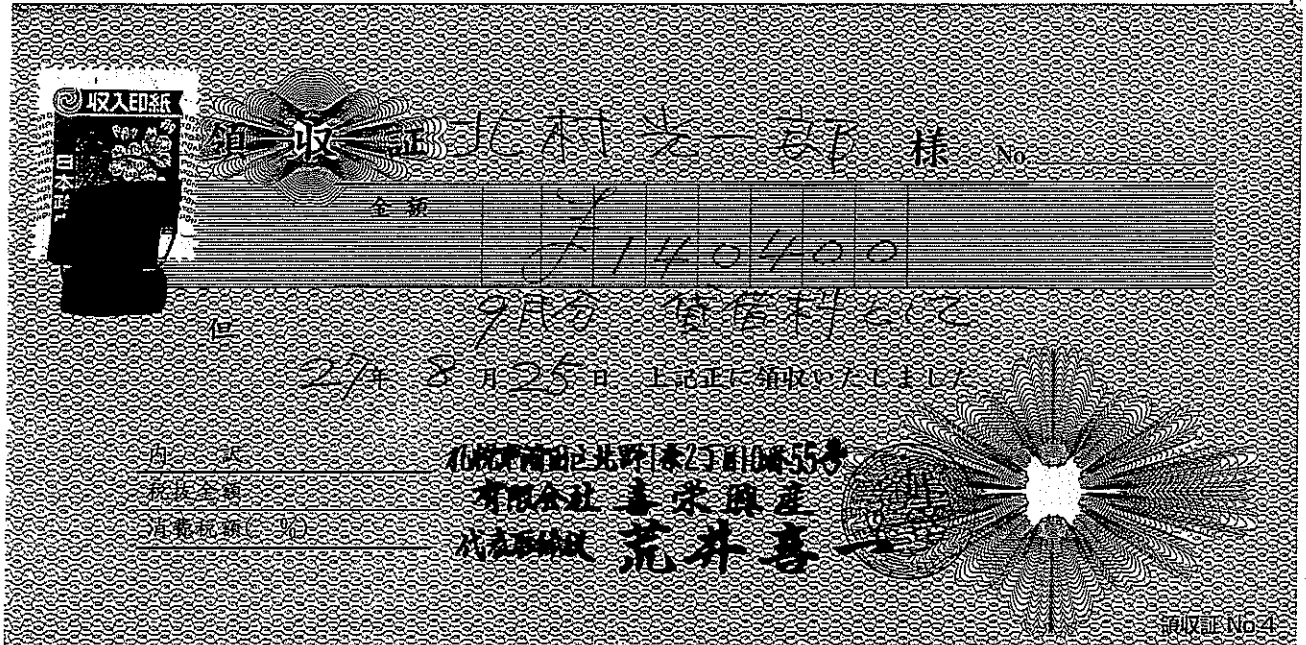 収入印紙
領収証 北村光一郎 様 No.
金額 ¥140400
但 9月分 賃借料として
27年 8月25日 上記正に領収いたしました
内訳
税抜金額
消費税額( %)
札幌市清田区北野1条2丁目10番55号
有限会社 喜栄興産
代表取締役 荒井喜一
領収証 No.4